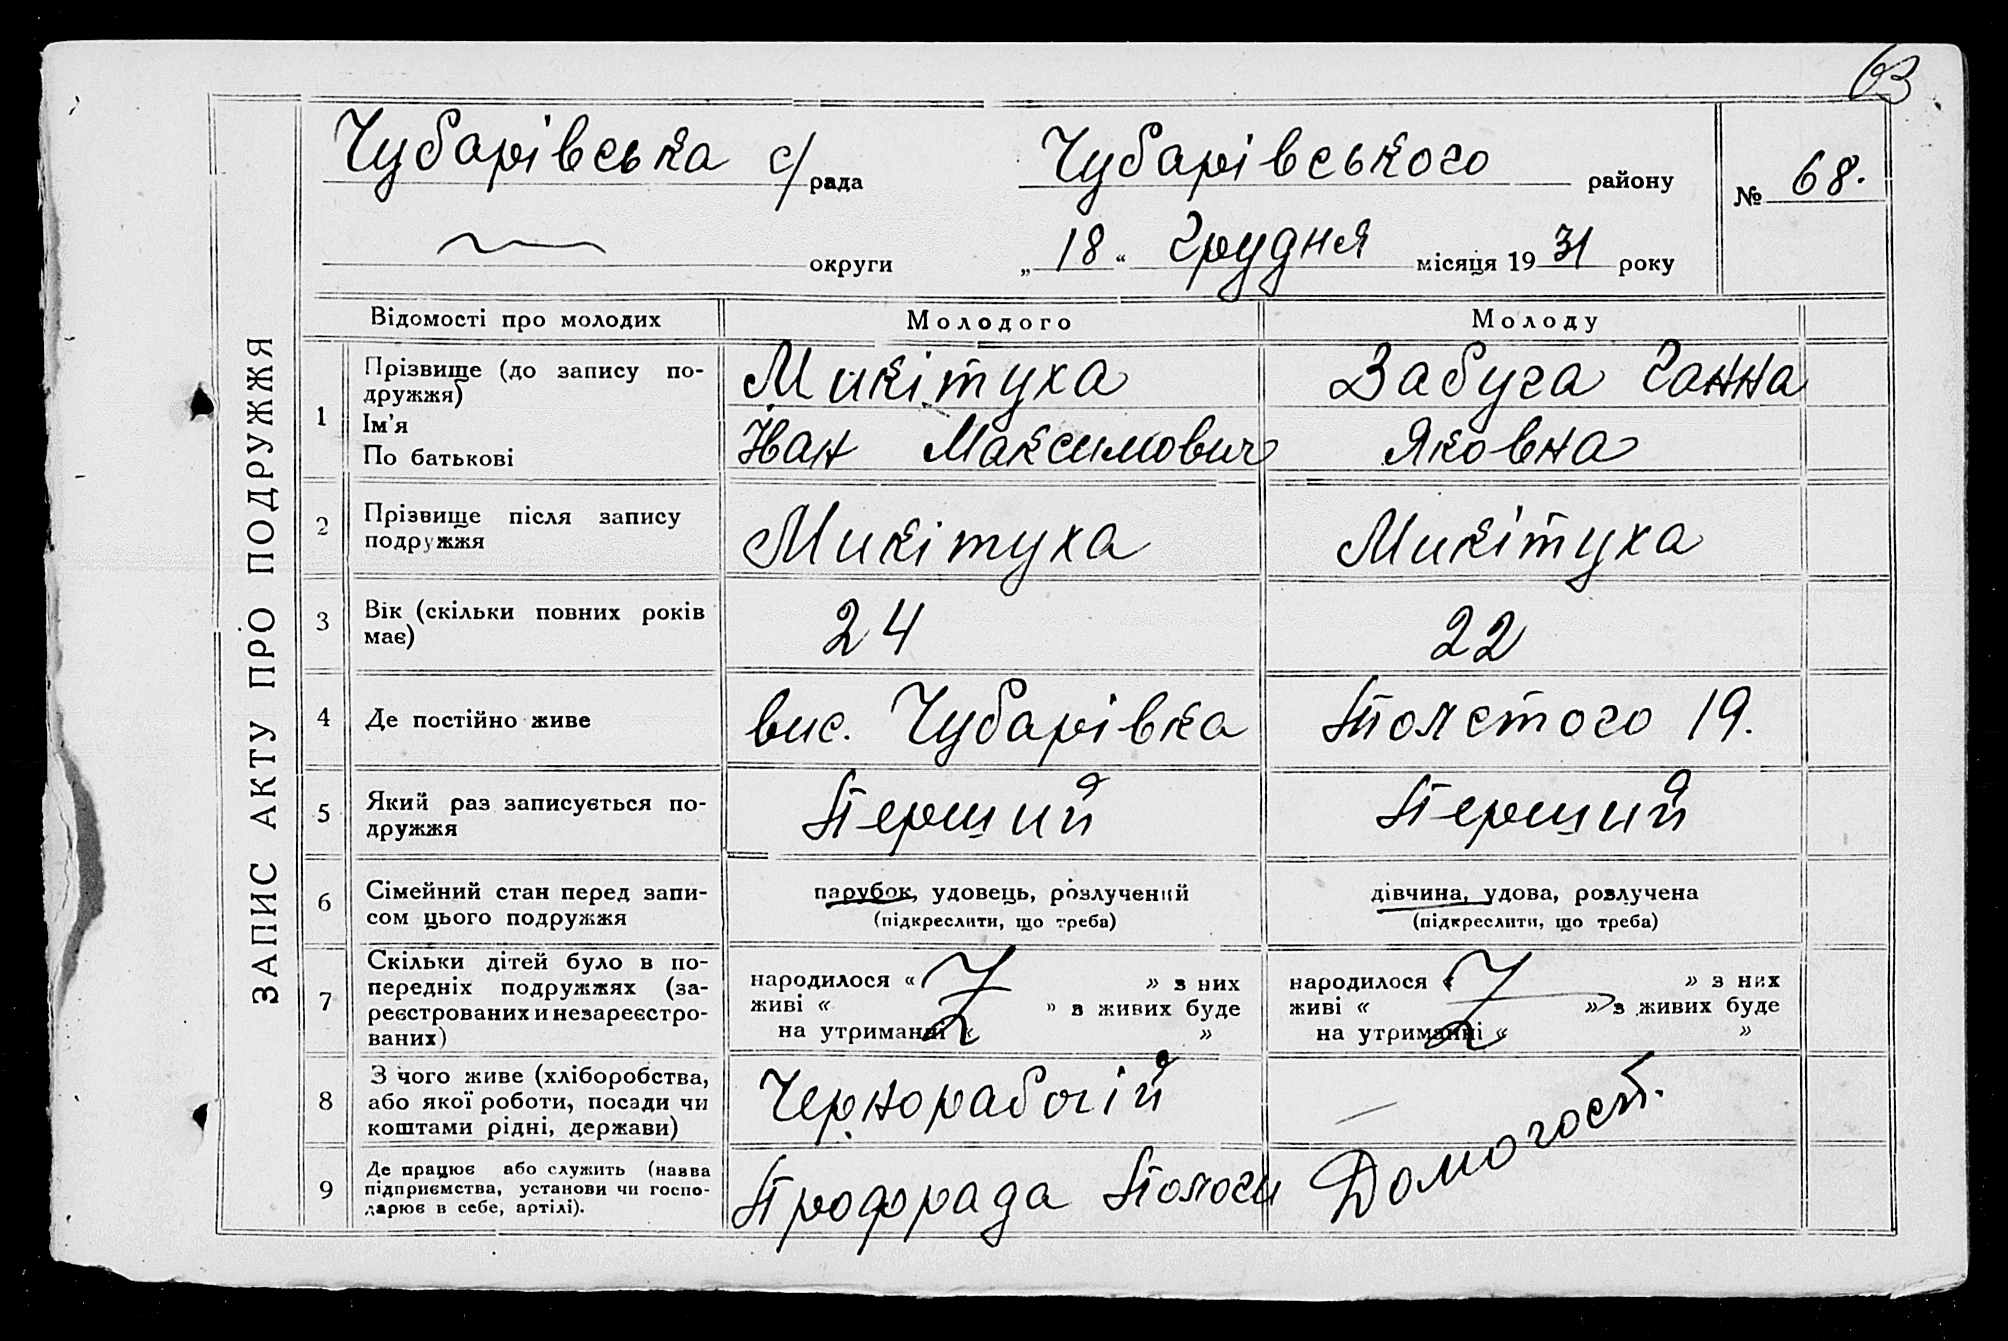 63
Чубарівська с/рада Чубарівського району № 68.
округи „18“ Грудня місяця 1931 року
ЗАПИС АКТУ ПРО ПОДРУЖЖЯ
Відомості про молодих Молодого Молоду
1 Прізвище (до запису по-
дружжя)
Ім'я
По батькові
Микітуха
Іван Максимович
Забуга Ганна
Яковна
2 Прізвище після запису
подружжя
Микітуха Микітуха
3 Вік (скільки повних років
має)
24 22
4 Де постійно живе вис. Чубарівка Толстого 19.
5 Який раз записується по-
дружжя
Перший Перший
6 Сімейний стан перед запи-
сом цього подружжя
парубок, удовець, розлучений
(підкреслити, що треба)
дівчина, удова, розлучена
(підкреслити, що треба)
7 Скільки дітей було в по-
передніх подружжях (за-
реєстрованих и незареєстро-
ваних)
народилося « » з них
живі « » з живих буде
на утриманні « »
народилося « » з них
живі « » з живих буде
на утриманні « »
8 З чого живе (хліборобства,
або якої роботи, посади чи
коштами рідні, держави)
Чернорабочій
9 Де працює або служить (назва
підприємства, установи чи госпо-
дарює в себе, артілі).
Профрада Пологи
Домогосп.